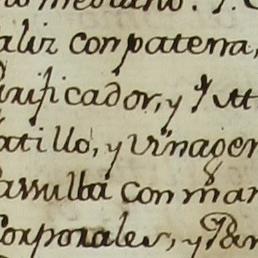 mediano.
aliz con patena,
urificador, y
atillo, y vinager
asulla con man
Corporales, y